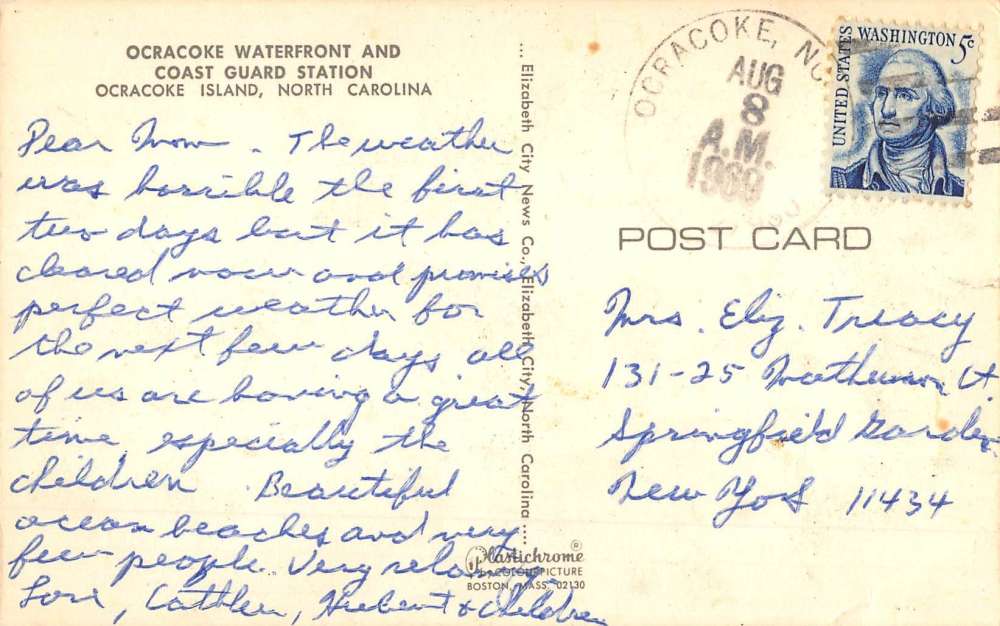 OCRACOKE WATERFRONT AND
COAST GUARD STATION
OCRACOKE ISLAND, NORTH CAROLINA
Dear Mom. The weather
was horrible the first
two days but it has
cleared now and promises
perfect weather for
the next few days all
of us are having a great
time especially the
children. Beautiful
ocean beaches and very
few people. Very
Love, Cathleen, Hubert & children
... Elizabeth City News Co., Elizabeth City, North Carolina ...
Plastichrome®
COLOURPICTURE
BOSTON, MASS. 02130
OCRACOKE, NC
AUG
8
A.M.
1969
UNITED STATES
WASHINGTON 5c
POST CARD
Mrs. Eliz. Treacy
131-25 Ct
Springfield Garden
New York 11434